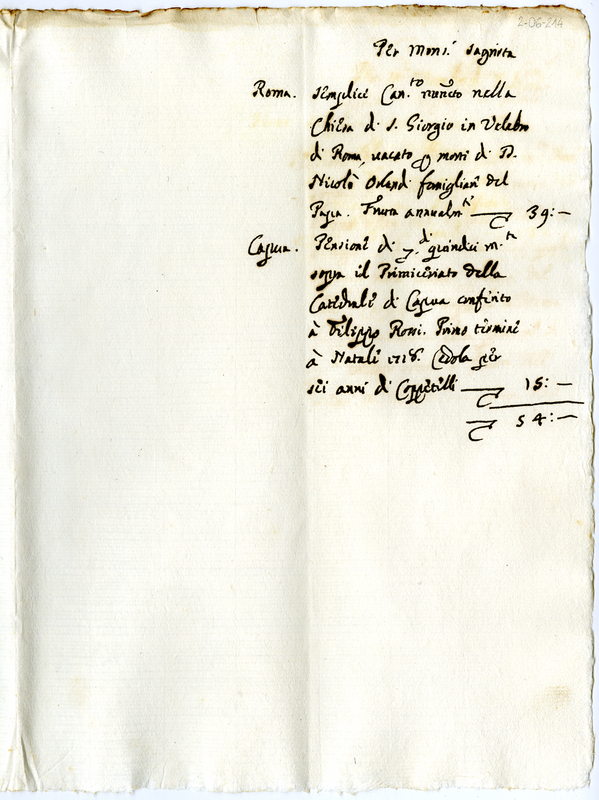 2-06-214
Per Mons.r Sagrista
Roma. Semplici Can.to nella
Chiesa di S. Giorgio in Velabro
di Roma, vacato morte di D.
Nicolò Orlandi famigliare del
Papa. Frutta annualm.te 39:—
Capua. Pensione di quindici m.ta
sopra il Primiceriato della
Catedrale di Capua conferito
à Filippo Rossi. Primo termine
à Natale 1718. Cedola per
sei anni di 15:—
54:—